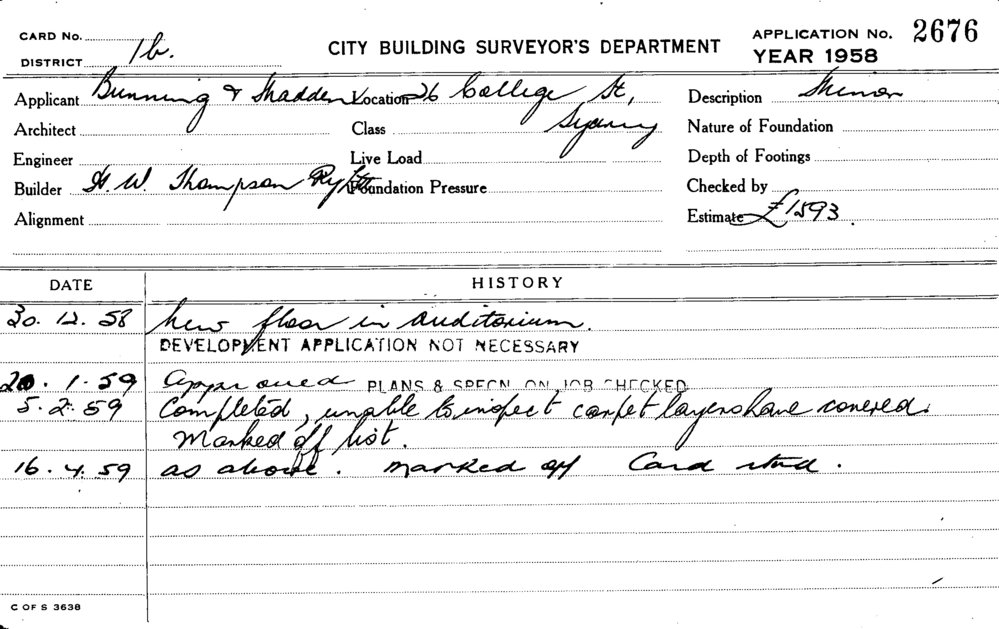 CARD No.
DISTRICT 1b.
CITY BUILDING SURVEYOR'S DEPARTMENT
APPLICATION No. 2676
YEAR 1958
Applicant Bunning & Madden Location 26 College St, Description Minor
Architect Class Sydney Nature of Foundation
Engineer Live Load Depth of Footings
Builder H. W. Thompson Foundation Pressure Checked by
Alignment Estimate £1593.
DATE HISTORY
30. 12. 58 New floor in auditorium.
DEVELOPMENT APPLICATION NOT NECESSARY
20. 1. 59 Approved PLANS & SPECN. ON JOB CHECKED
5. 2. 59 Completed, unable to inspect carpet layers have covered.
Marked off list.
16. 4. 59 as above. Marked off Card
C OF S 3638